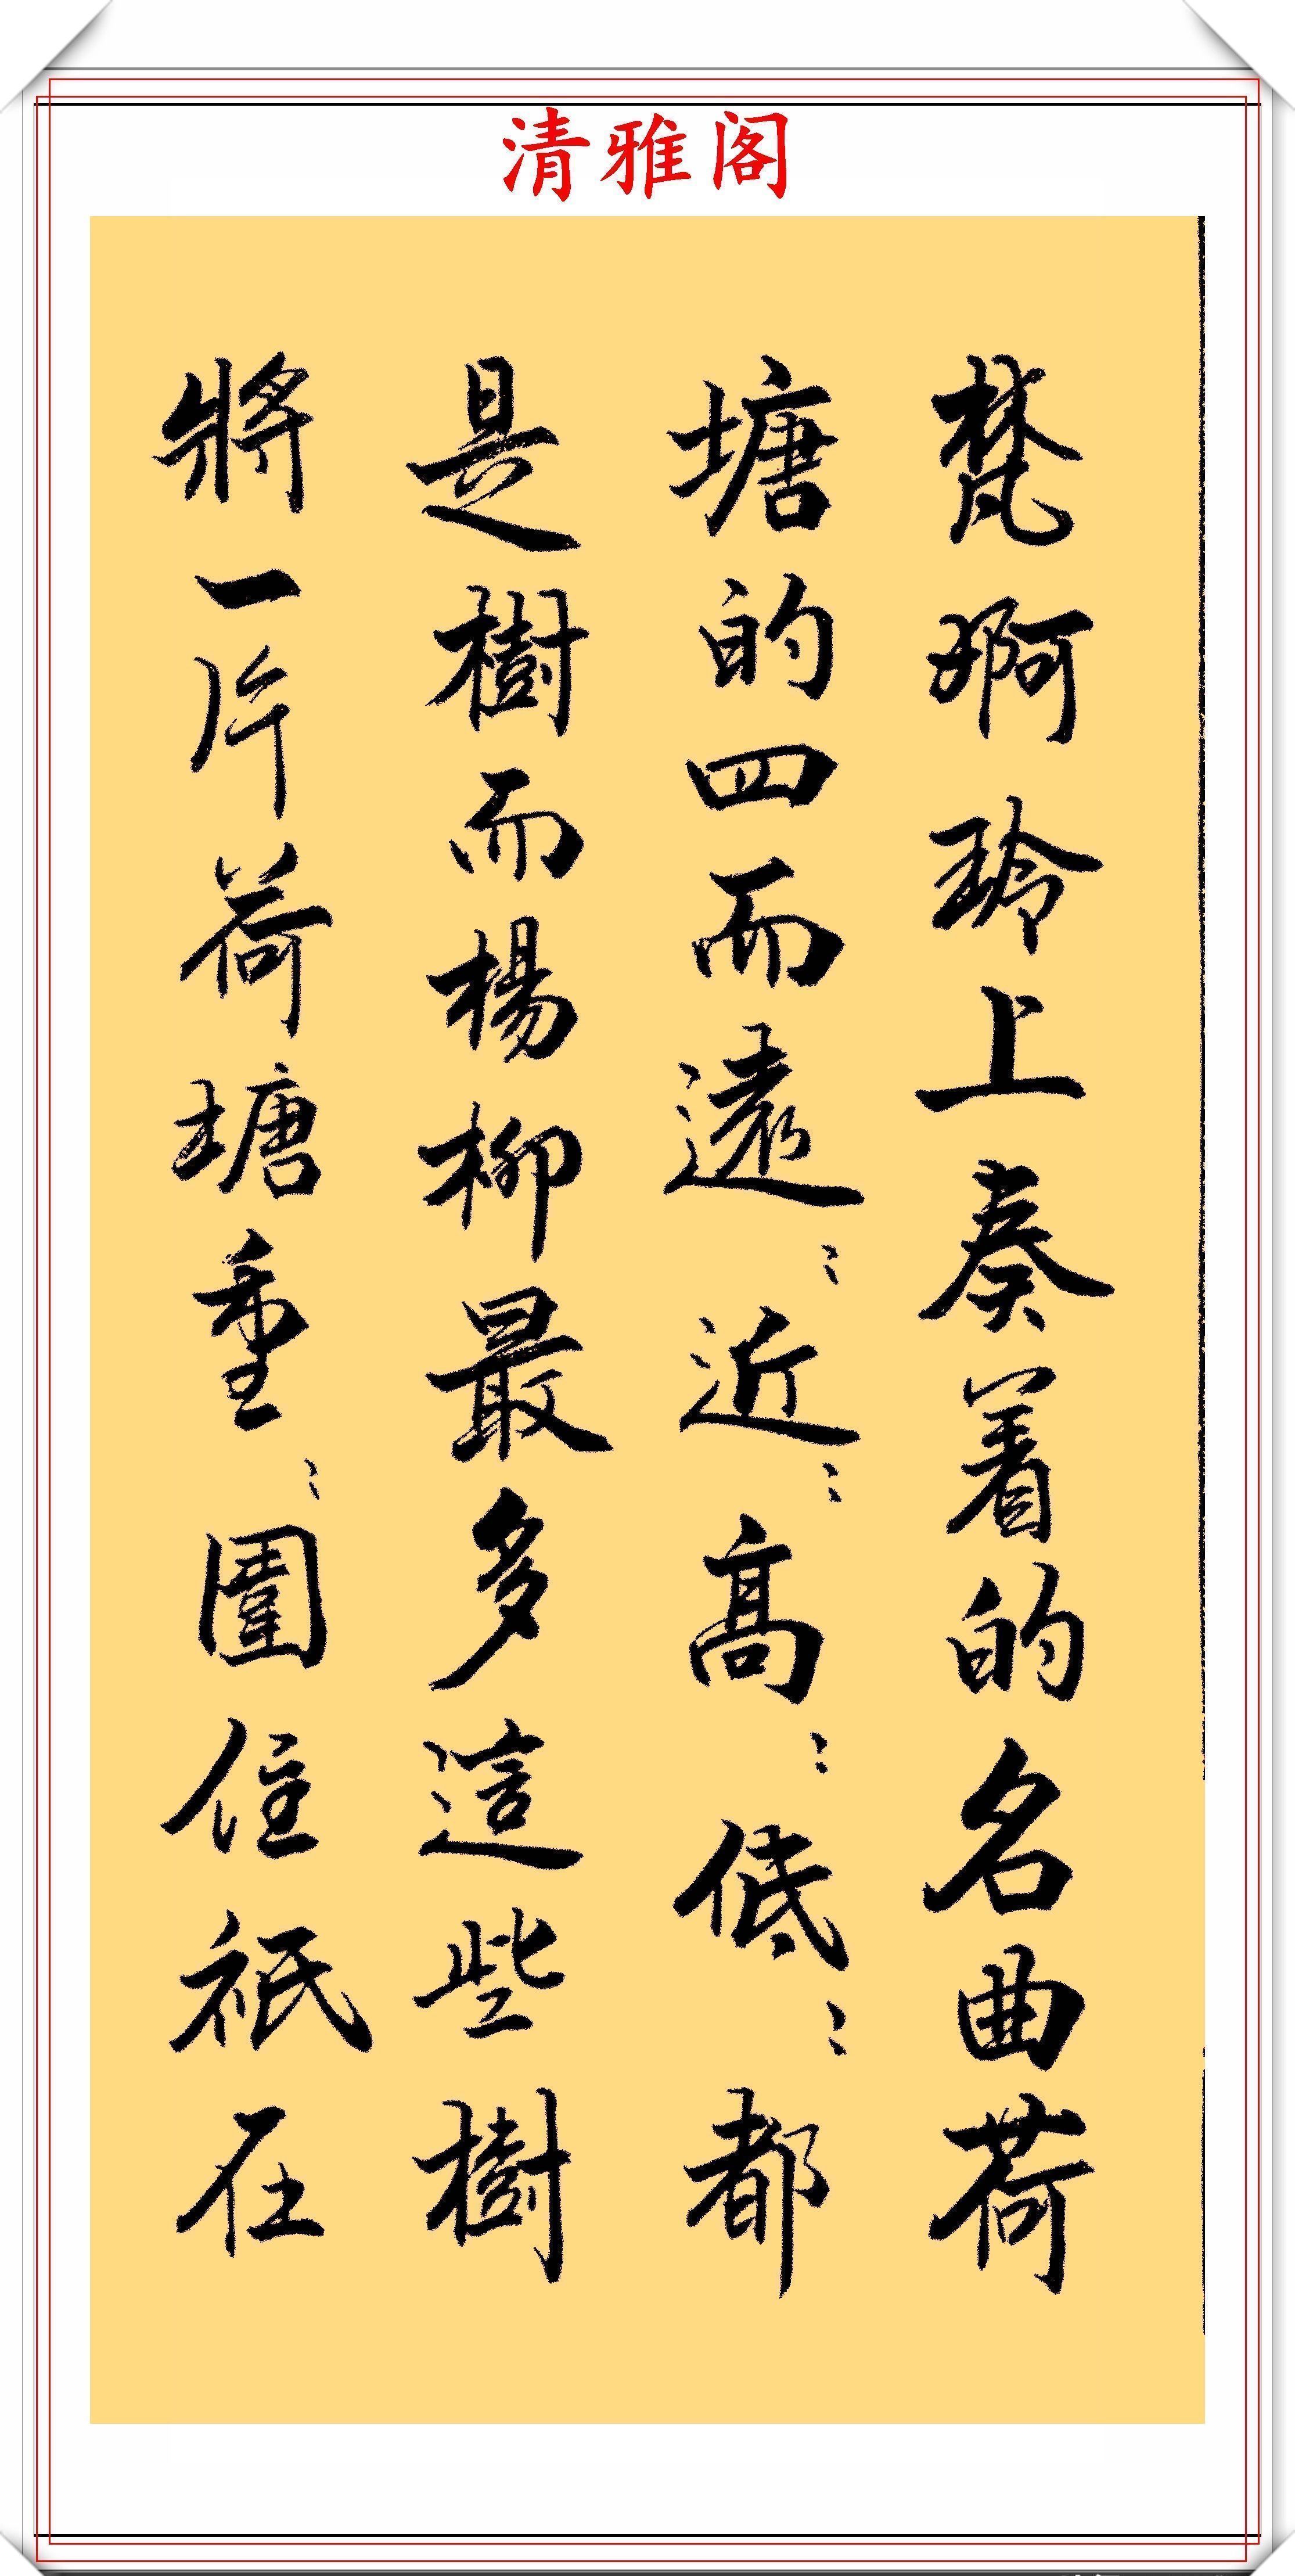 清雅阁
梵啊玲上奏着的名曲荷
塘的四面遠〻近〻高〻低〻都
是樹而楊柳最多這些樹
將一片荷塘重〻圍住祇在